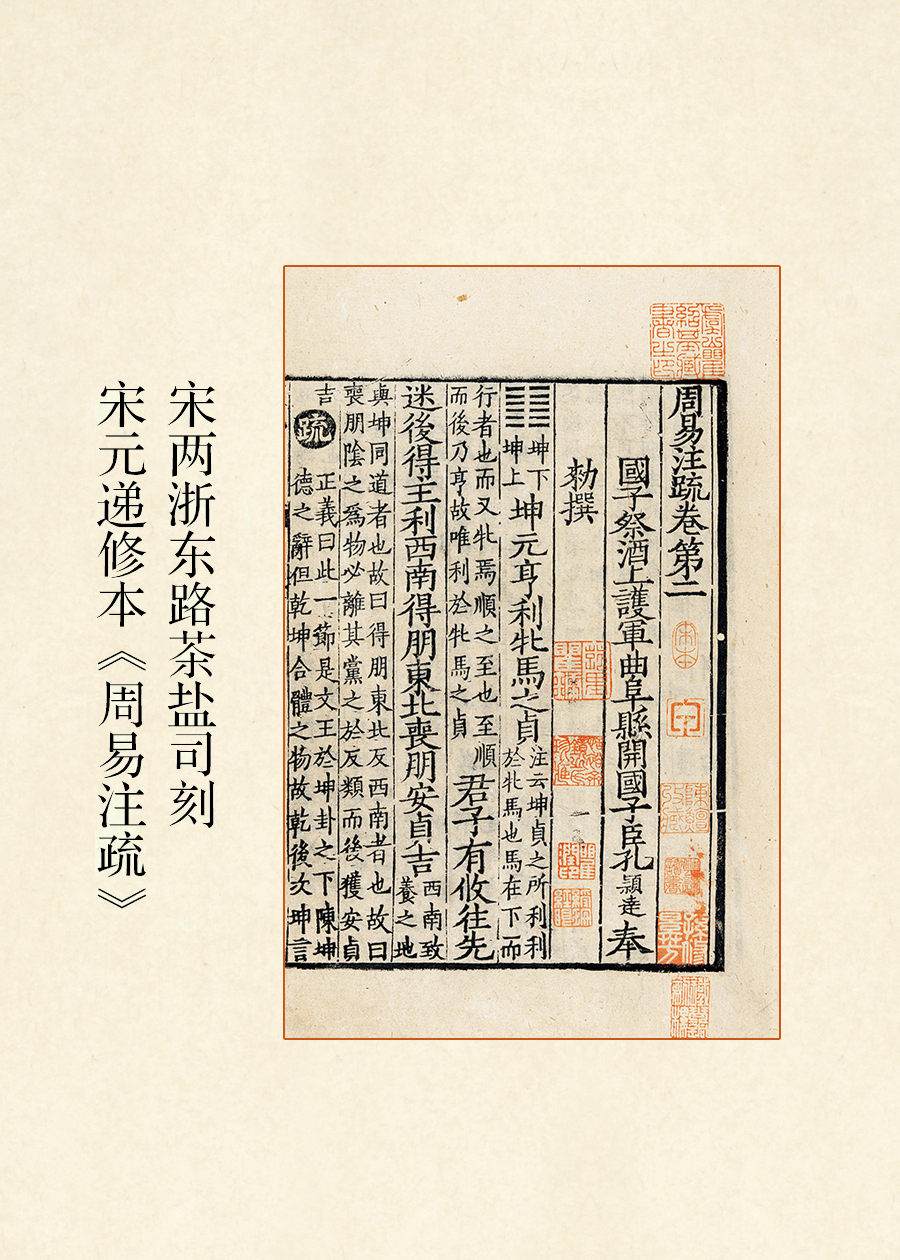 周易注疏卷第二
宋本
國子祭酒上護軍曲阜縣開國子臣孔穎達奉
勑撰
䷁ 坤下 坤上 坤元亨利牝馬之貞 注云坤貞之所利利
於牝馬也馬在下而
行者也而又牝焉順之至也至順
而後乃亨故唯利於牝馬之貞 君子有攸往先
迷後得主利西南得朋東北喪朋安貞吉 西南致
養之地
與坤同道者也故曰得朋東北反西南者也故曰
喪朋陰之爲物必離其黨之於反類而後獲安貞
吉 疏 正義曰此一節是文王於坤卦之下陳坤
德之辭但乾坤合體之物故乾後次坤言
宋两浙东路茶盐司刻
宋元递修本《周易注疏》